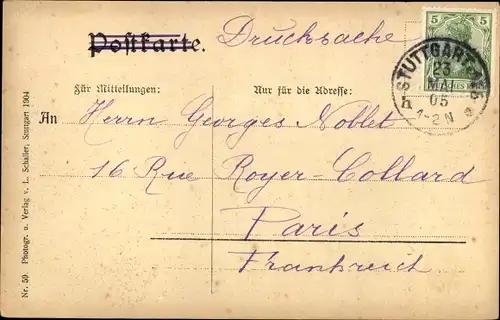 Postkarte. Drucksache
5 5
STUTTGART
23
MAI
05
1-2 N
h
Für Mitteilungen:
Nur für die Adresse:
An Herrn Georges Noblet
16 Rue Royer-Collard
Paris
Frankreich
Nr. 50. Photogr. u. Verlag v. L. Schaller, Stuttgart 1904